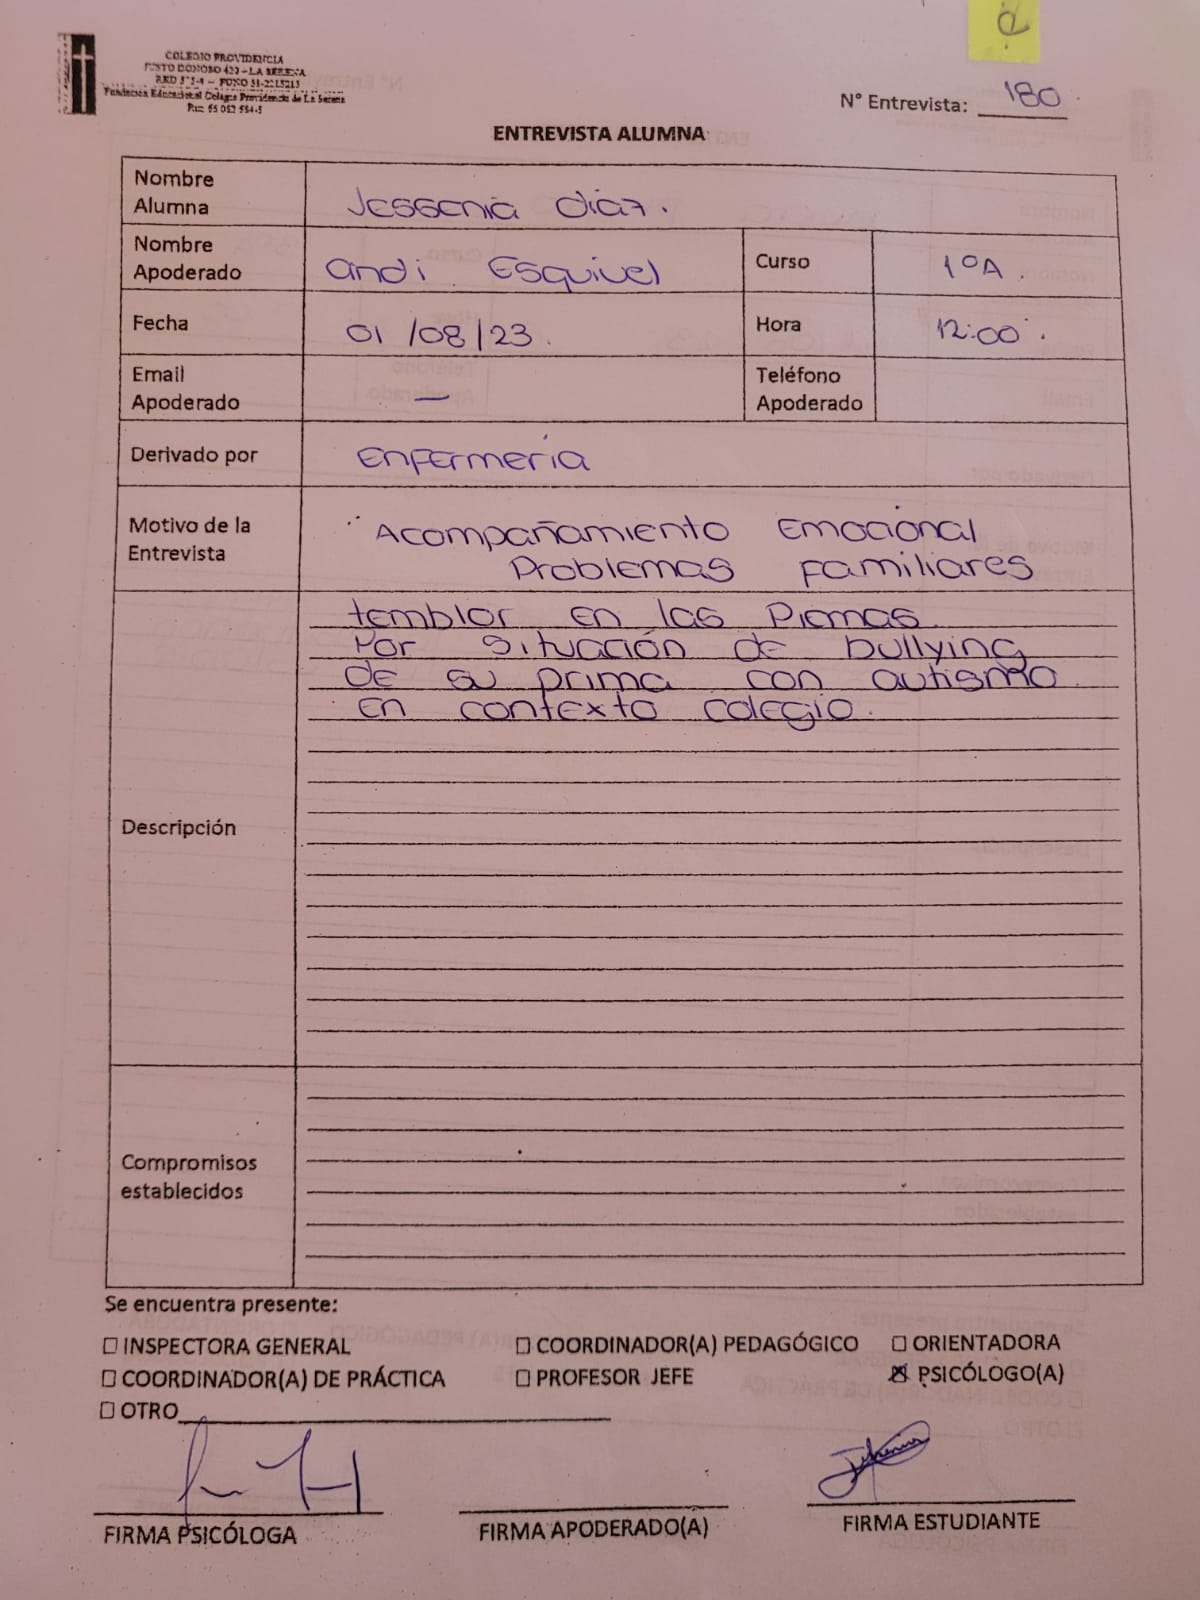 COLEGIO PROVIDENCIA
JUSTO DONOSO 420 - LA SERENA
FONO 51-2215215
Fundación Educacional Colegio Providencia de La Serena
N° Entrevista: 180.
ENTREVISTA ALUMNA
Nombre
Alumna
Jessenia Díaz.
Nombre
Apoderado
Andi Esquivel
Curso
1°A.
Fecha
01/08/23.
Hora
12:00.
Email
Apoderado
—
Teléfono
Apoderado
Derivado por
Enfermería
Motivo de la
Entrevista
Acompañamiento Emocional
Problemas familiares
Descripción
temblor en las Piernas
Por situación de bullying
de su prima con autismo.
En contexto colegio.
Compromisos
establecidos
Se encuentra presente:
☐ INSPECTORA GENERAL ☐ COORDINADOR(A) PEDAGÓGICO ☐ ORIENTADORA
☐ COORDINADOR(A) DE PRÁCTICA ☐ PROFESOR JEFE ☒ PSICÓLOGO(A)
☐ OTRO
FIRMA PSICÓLOGA FIRMA APODERADO(A) FIRMA ESTUDIANTE